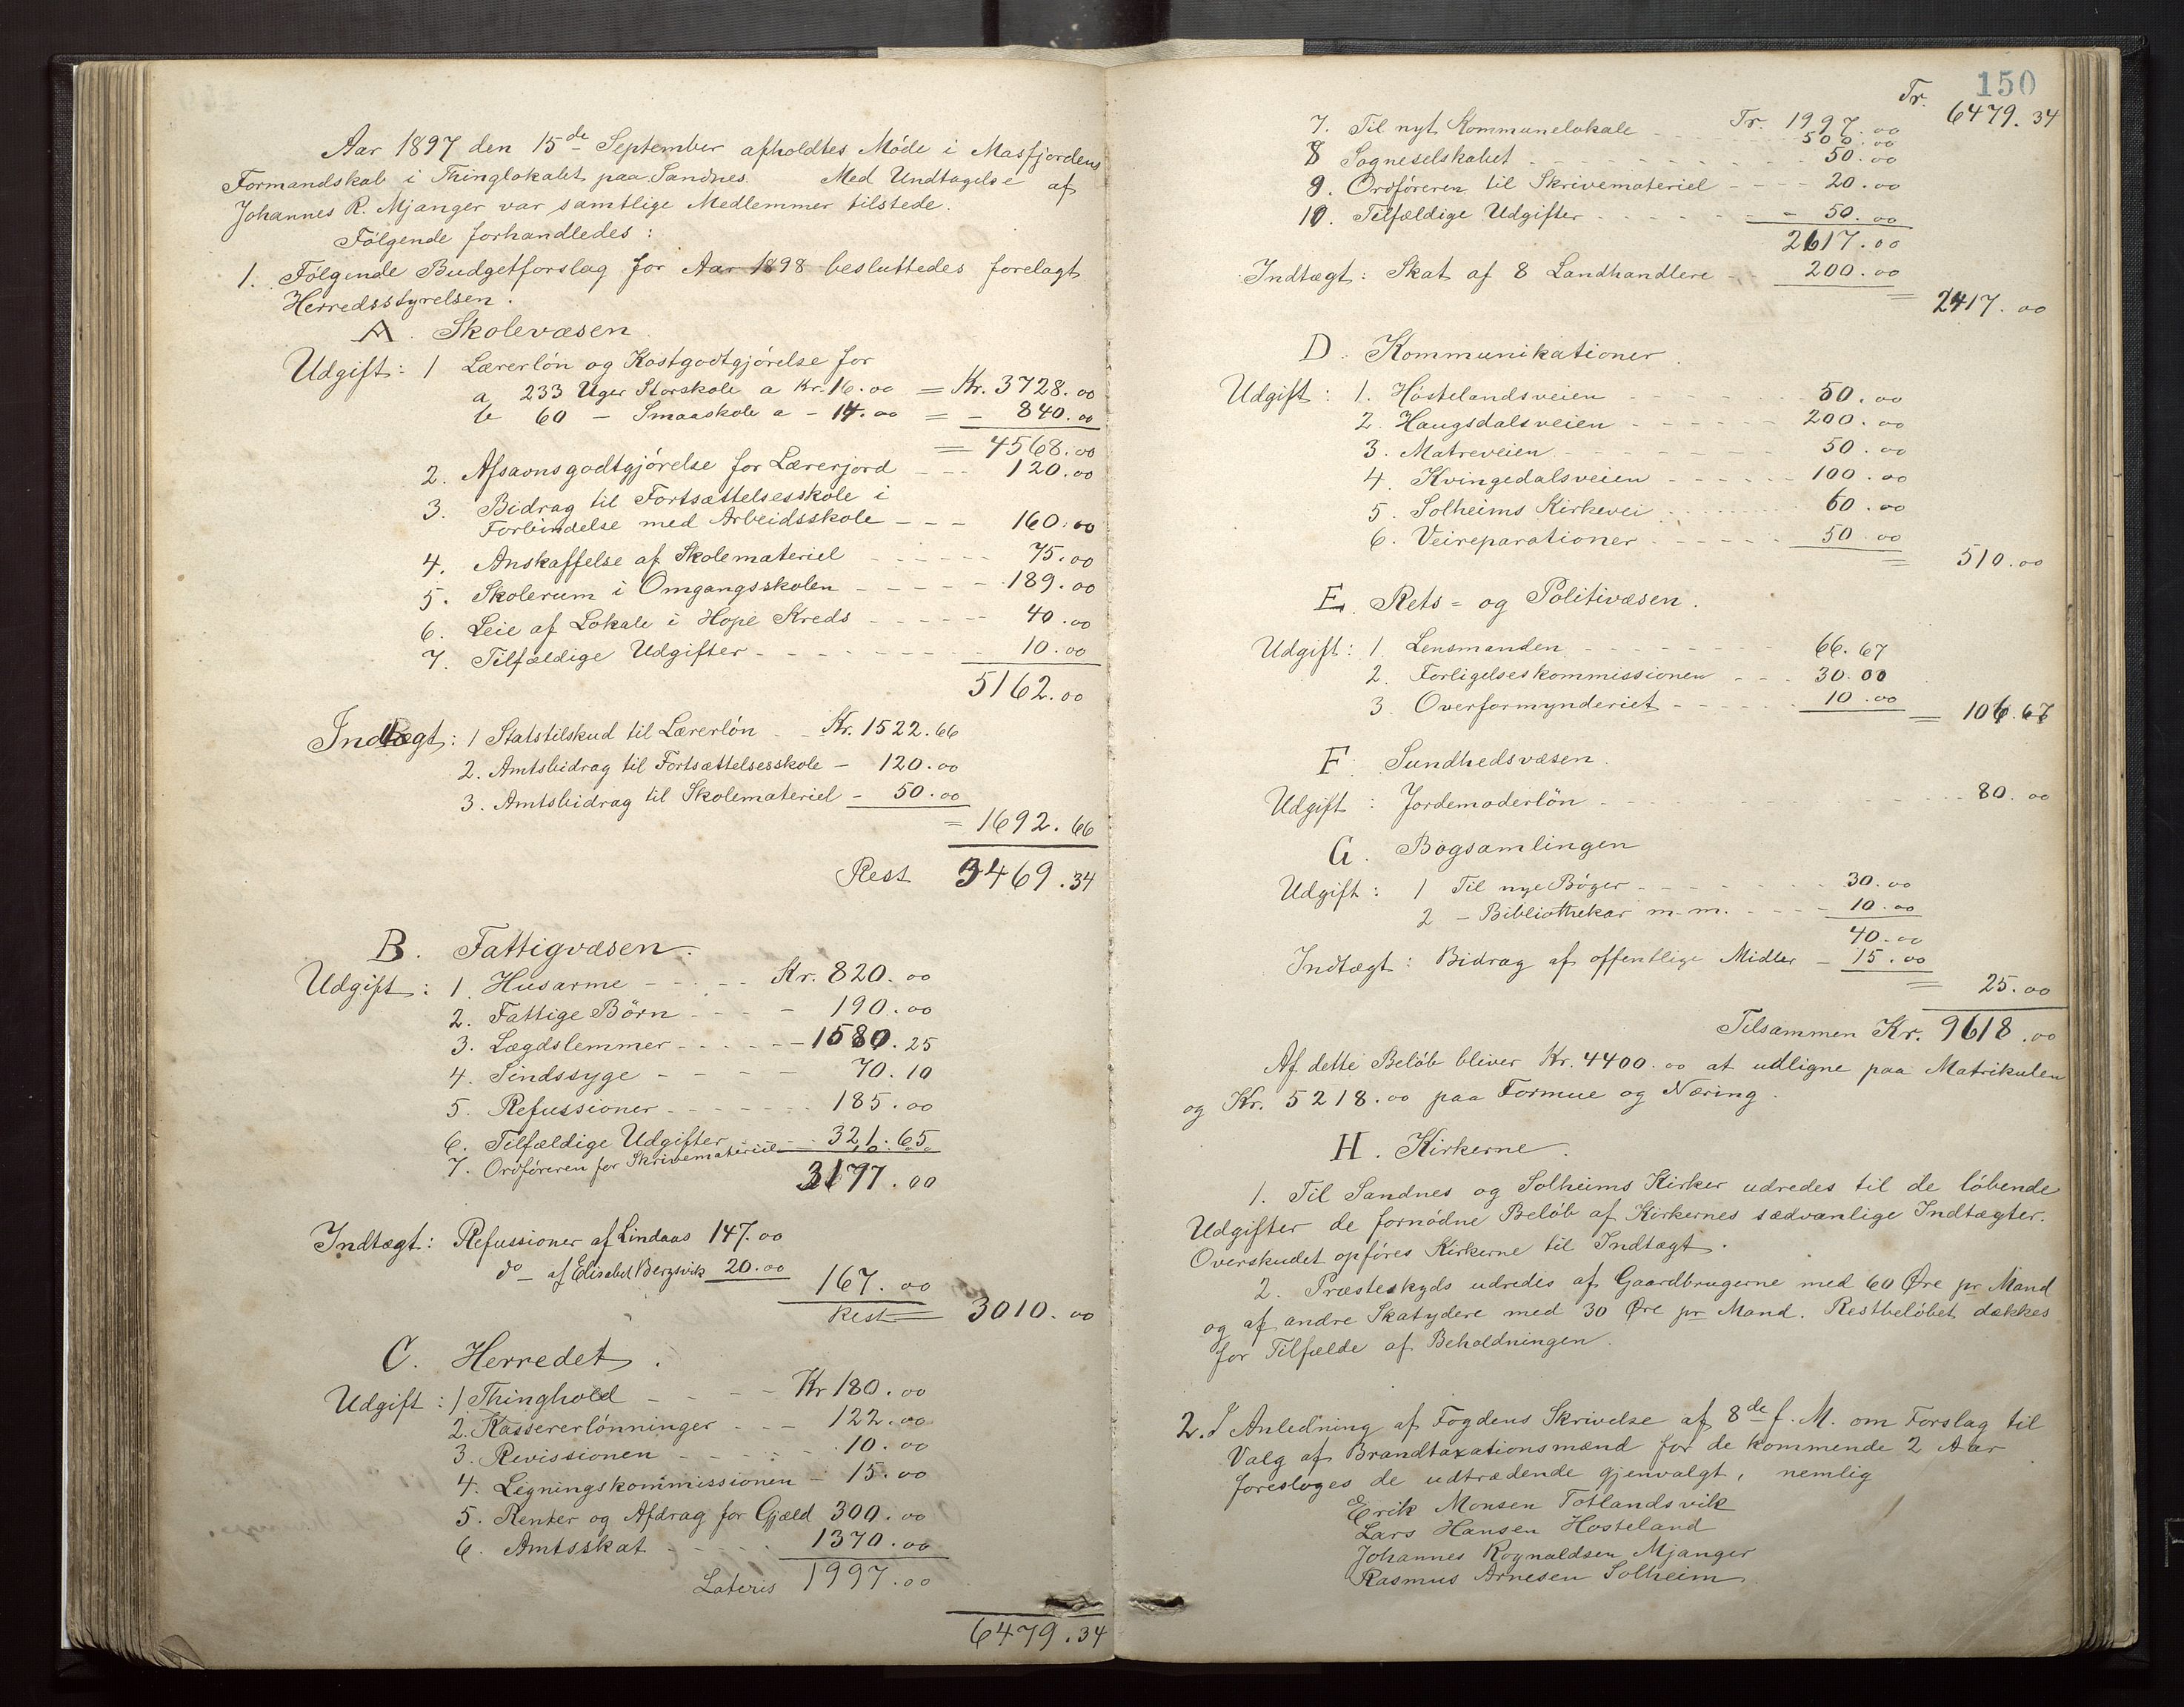 Aar 1897 den 15de September afholdtes Møde i Masfjordens
Formandskab i Thinglokalet paa Sandnes. Med Undtagelse af
Johannes R. Mjanger var samtlige Medlemmer tilstede.
Følgende forhandledes:
1. Følgende Budgetforslag for Aar 1898 besluttedes forelagt
Herredsstyrelsen.
A. Skolevæsen.
Udgift: 1 Lærerløn og Kostgodtgjørelse for
a 233 Uger Storskole a Kr. 16.00 = Kr. 3728.00
b 60 — Smaaskole a - 14.00 = - 840.00
= 4568.00
2. Afsavnsgodtgjørelse for Lærerjord - - - 120.00
3. Bidrag til Fortsættelsesskole i
Forbindelse med Arbeidsskole - - - 160.00
4. Anskaffelse af Skolemateriel - - - 75.00
5. Skolerum i Omgangsskolen - - - 189.00
6. Leie af Lokale i Hope Kreds - - - 40.00
7. Tilfældige Udgifter - - - 10.00
5162.00
Indtægt: 1 Statstilskud til Lærerløn - - Kr. 1522.66
2. Amtsbidrag til Fortsættelsesskole - 120.00
3. Amtsbidrag til Skolemateriel - 50.00
= 1692.66
Rest 3469.34
B. Fattigvæsen.
Udgift: 1. Husarme - - - Kr. 820.00
2. Fattige Børn - - - 190.00
3. Lægdslemmer - - - 1580.25
4. Sindssyge - - - 70.10
5. Refussioner - - - 185.00
6. Tilfældige Udgifter - - 321.65
7. Ordføreren for Skrivemateriel
3177.00
Indtægt: Refussioner af Lindaas 147.00
do — af Elisabet Bergsvik 20.00
167.00
Rest = 3010.00
C. Herredet.
Udgift: 1 Thinghold - - - Kr 180.00
2. Kassererlønninger - - - 122.00
3. Revissionen - - - 10.00
4. Ligningskommissionen - 15.00
5. Renter og Afdrag for Gjæld 300.00
6. Amtsskat - - - 1370.00
Lateris 1997.00
6479.34
150
Tr. 6479.34
Tr. 1997.00
7. Til nyt Kommunelokale - - - 500.00
8 Sogneselskabet - - - 50.00
9. Ordføreren til Skrivemateriel - - - 20.00
10. Tilfældige Udgifter - - - 50.00
2617.00
Indtægt: Skat af 8 Landhandlere - - 200.00
= 2417.00
D. Kommunikationer.
Udgift: 1. Høstelandsveien - - - 50.00
2. Haugsdalsveien - - - 200.00
3. Matreveien - - - 50.00
4. Kvingedalsveien - - - 100.00
5. Solheims Kirkevei - - - 60.00
6. Veireparationer - - - 50.00
= 510.00
E. Rets- og Politivæsen.
Udgift: 1. Lensmanden - - - 66.67
2. Forligelseskommissionen - - - 30.00
3. Overformynderiet - - - 10.00
= 106.67
F. Sundhedsvæsen.
Udgift: Jordemoderløn - - - 80.00
G. Bogsamlingen
Udgift: 1 Til nye Bøger - - - 30.00
2 — Bibliothekar m. m. - - - 10.00
40.00
Indtægt: Bidrag af offentlige Midler - 15.00
= 25.00
Tilsammen Kr. 9618.00
Af dette Beløb bliver Kr. 4400.00 at udligne paa Matrikulen
og Kr. 5218.00 paa Formue og Næring.
H. Kirkerne.
1. Til Sandnes og Solheims Kirker udredes til de løbende
Udgifter de fornødne Beløb af Kirkernes sædvanlige Indtægter.
Overskudet opføres Kirkerne til Indtægt.
2. Præsteskyds udredes af Gaardbrugerne med 60 Øre pr Mand
og af andre Skatydere med 30 Øre pr Mand. Restbeløbet dækkes
for Tilfælde af Beholdningen.
2. I Anledning af Fogdens Skrivelse af 8de f. M. om Forslag til
Valg af Brandtaxationsmænd for de kommende 2 Aar
foresloges de udtrædende gjenvalgt, nemlig
Erik Monsen Totlandsvik
Lars Hansen Hosteland
Johannes Rognaldsen Mjanger
Rasmus Arnesen Solheim